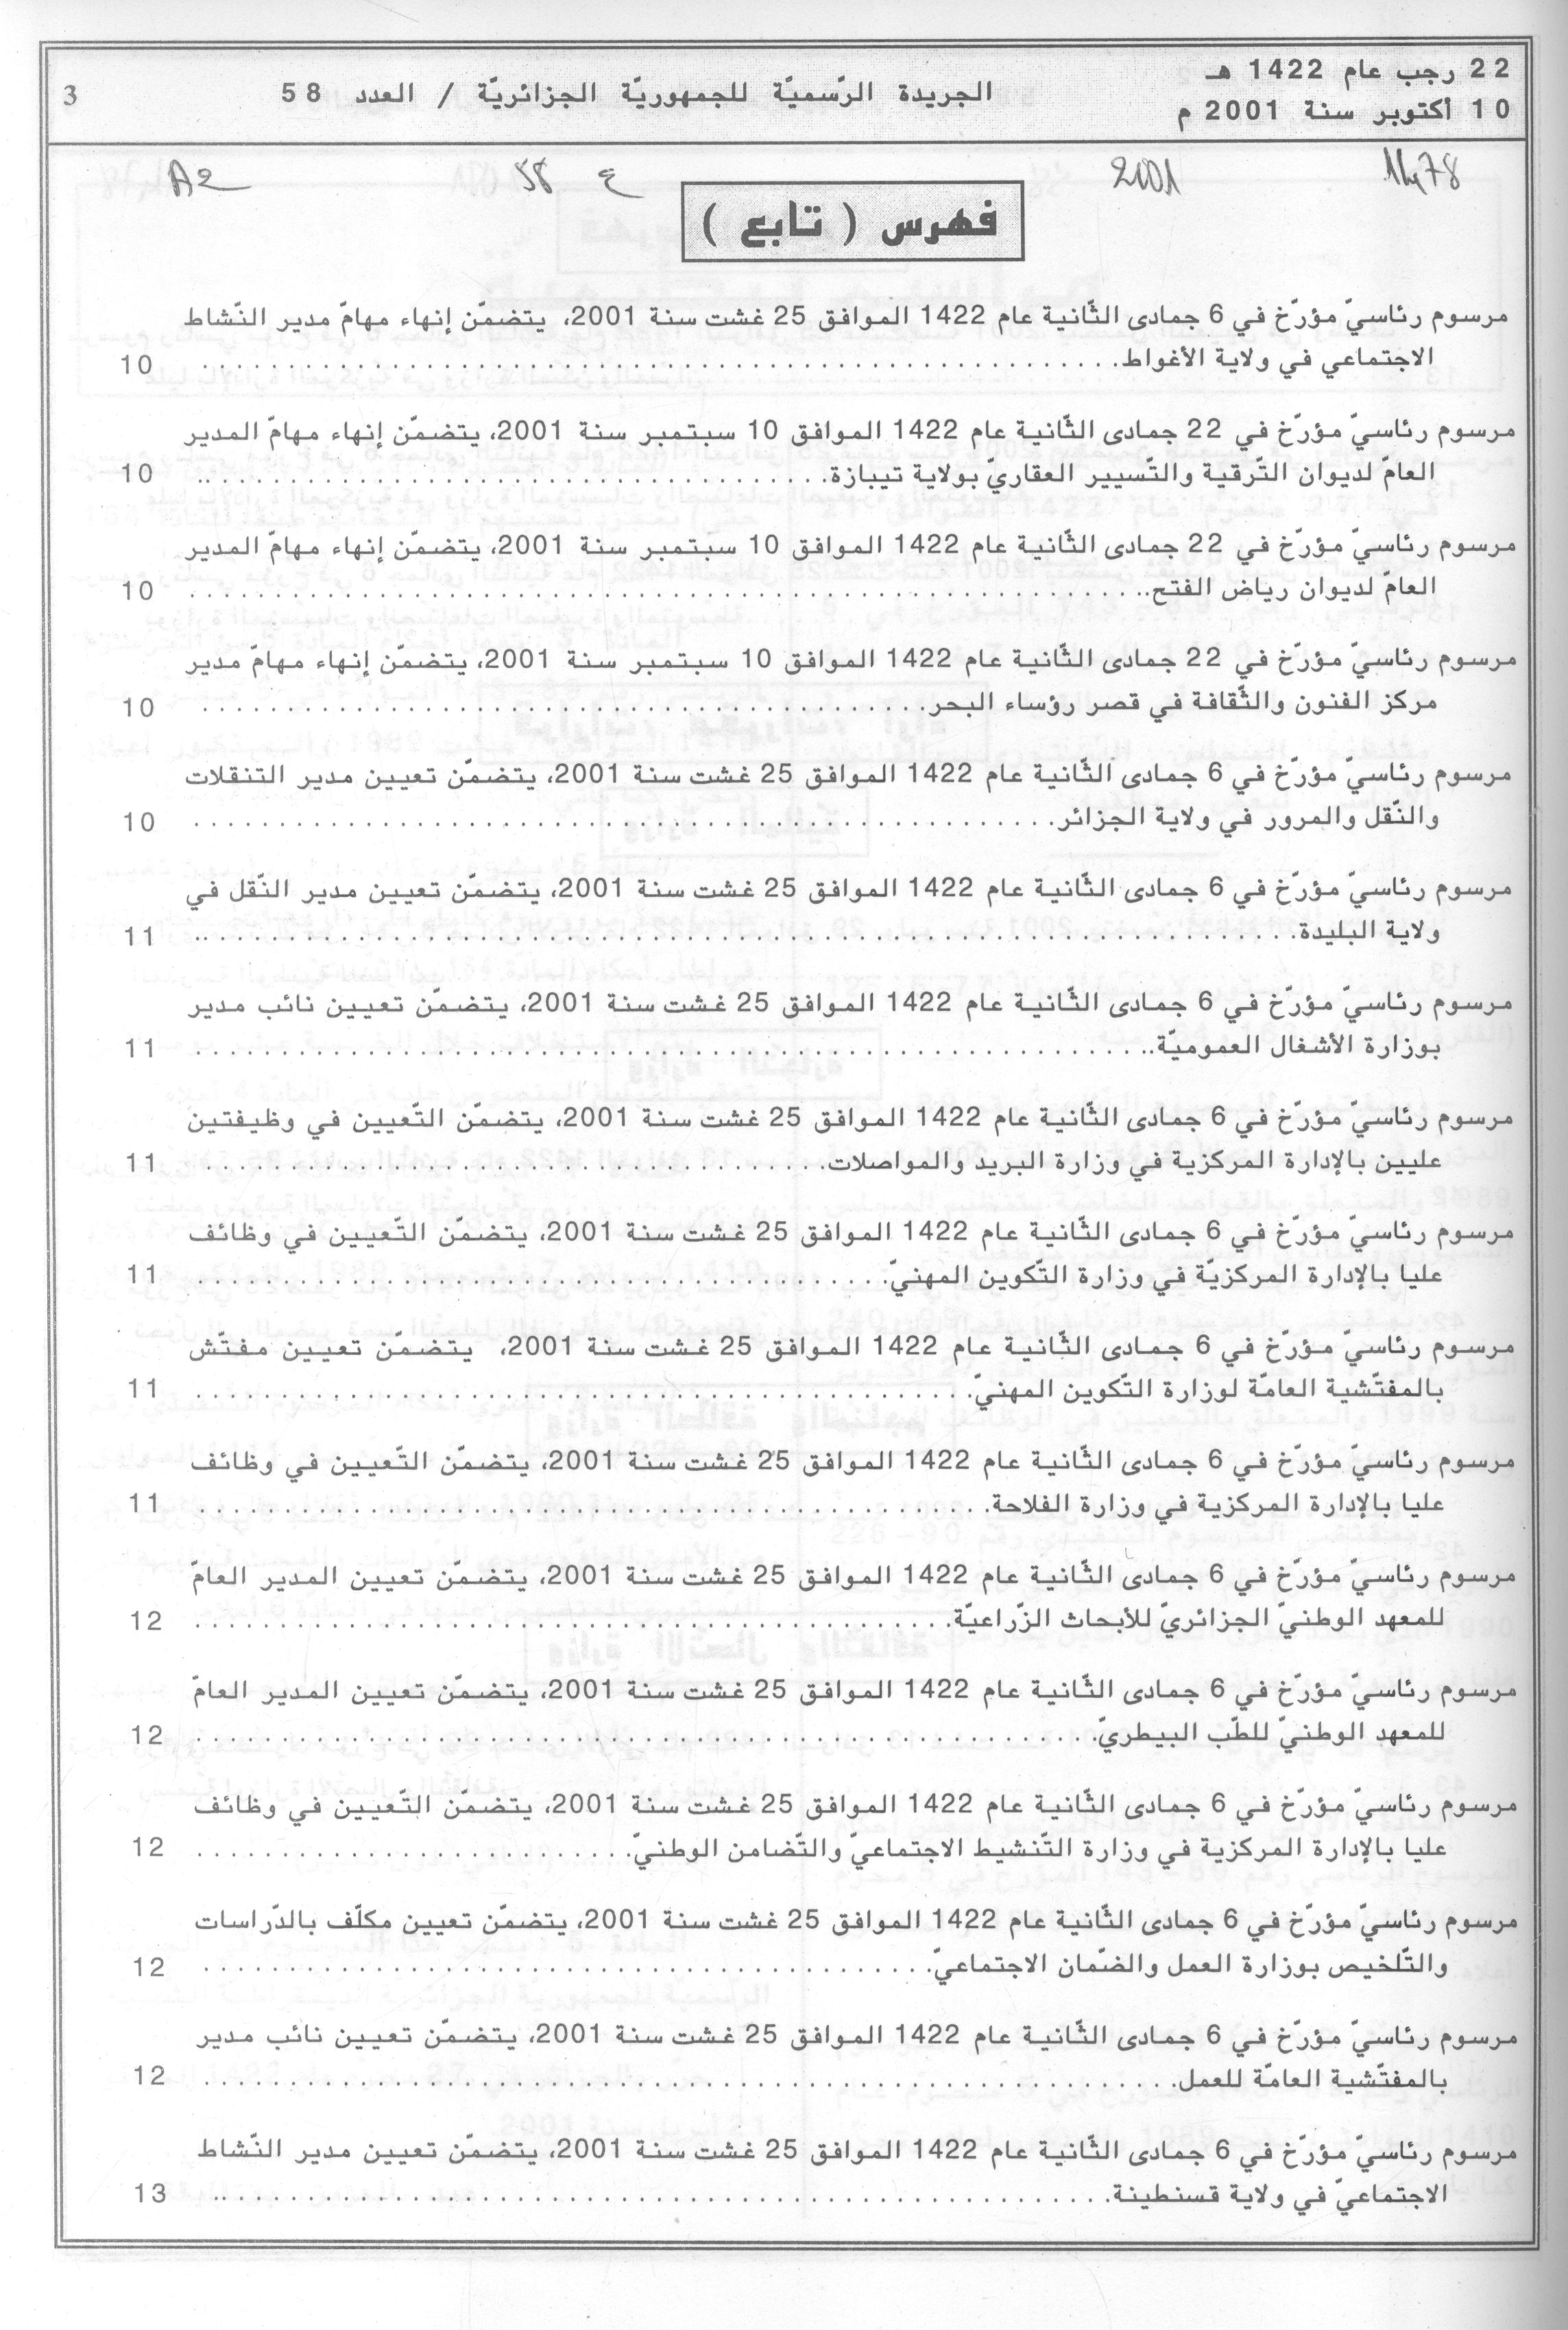 22 رجب عام 1422 هـ
10 أكتوبر سنة 2001 م
الجريدة الرّسميّة للجمهوريّة الجزائريّة / العدد 58
3
2001
ع 58
A2
فهرس ( تابع )
مرسوم رئاسيّ مؤرّخ في 6 جمادى الثّانية عام 1422 الموافق 25 غشت سنة 2001، يتضمّن إنهاء مهامّ مدير النّشاط
الاجتماعي في ولاية الأغواط. . . . . . . . . . 10
مرسوم رئاسيّ مؤرّخ في 22 جمادى الثّانية عام 1422 الموافق 10 سبتمبر سنة 2001، يتضمّن إنهاء مهامّ المدير
العامّ لديوان التّرقية والتّسيير العقاريّ بولاية تيبازة. . . . . . . . . . 10
مرسوم رئاسيّ مؤرّخ في 22 جمادى الثّانية عام 1422 الموافق 10 سبتمبر سنة 2001، يتضمّن إنهاء مهامّ المدير
العامّ لديوان رياض الفتح. . . . . . . . . . 10
مرسوم رئاسيّ مؤرّخ في 22 جمادى الثّانية عام 1422 الموافق 10 سبتمبر سنة 2001، يتضمّن إنهاء مهامّ مدير
مركز الفنون والثّقافة في قصر رؤساء البحر. . . . . . . . . . 10
مرسوم رئاسيّ مؤرّخ في 6 جمادى الثّانية عام 1422 الموافق 25 غشت سنة 2001، يتضمّن تعيين مدير التنقلات
والنّقل والمرور في ولاية الجزائر. . . . . . . . . . 10
مرسوم رئاسيّ مؤرّخ في 6 جمادى الثّانية عام 1422 الموافق 25 غشت سنة 2001، يتضمّن تعيين مدير النّقل في
ولاية البليدة. . . . . . . . . . 11
مرسوم رئاسيّ مؤرّخ في 6 جمادى الثّانية عام 1422 الموافق 25 غشت سنة 2001، يتضمّن تعيين نائب مدير
بوزارة الأشغال العموميّة. . . . . . . . . . 11
مرسوم رئاسيّ مؤرّخ في 6 جمادى الثّانية عام 1422 الموافق 25 غشت سنة 2001، يتضمّن التّعيين في وظيفتين
عليين بالإدارة المركزية في وزارة البريد والمواصلات. . . . . . . . . . 11
مرسوم رئاسيّ مؤرّخ في 6 جمادى الثّانية عام 1422 الموافق 25 غشت سنة 2001، يتضمّن التّعيين في وظائف
عليا بالإدارة المركزيّة في وزارة التّكوين المهنيّ. . . . . . . . . . 11
مرسوم رئاسيّ مؤرّخ في 6 جمادى الثّانية عام 1422 الموافق 25 غشت سنة 2001، يتضمّن تعيين مفتّش
بالمفتّشية العامّة لوزارة التّكوين المهنيّ. . . . . . . . . . 11
مرسوم رئاسيّ مؤرّخ في 6 جمادى الثّانية عام 1422 الموافق 25 غشت سنة 2001، يتضمّن التّعيين في وظائف
عليا بالإدارة المركزية في وزارة الفلاحة. . . . . . . . . . 11
مرسوم رئاسيّ مؤرّخ في 6 جمادى الثّانية عام 1422 الموافق 25 غشت سنة 2001، يتضمّن تعيين المدير العامّ
للمعهد الوطنيّ الجزائريّ للأبحاث الزّراعيّة. . . . . . . . . . 12
مرسوم رئاسيّ مؤرّخ في 6 جمادى الثّانية عام 1422 الموافق 25 غشت سنة 2001، يتضمّن تعيين المدير العامّ
للمعهد الوطنيّ للطّب البيطريّ. . . . . . . . . . 12
مرسوم رئاسيّ مؤرّخ في 6 جمادى الثّانية عام 1422 الموافق 25 غشت سنة 2001، يتضمّن التّعيين في وظائف
عليا بالإدارة المركزية في وزارة التّنشيط الاجتماعيّ والتّضامن الوطنيّ. . . . . . . . . . 12
مرسوم رئاسيّ مؤرّخ في 6 جمادى الثّانية عام 1422 الموافق 25 غشت سنة 2001، يتضمّن تعيين مكلّف بالدّراسات
والتّلخيص بوزارة العمل والضّمان الاجتماعيّ. . . . . . . . . . 12
مرسوم رئاسيّ مؤرّخ في 6 جمادى الثّانية عام 1422 الموافق 25 غشت سنة 2001، يتضمّن تعيين نائب مدير
بالمفتّشية العامّة للعمل. . . . . . . . . . 12
مرسوم رئاسيّ مؤرّخ في 6 جمادى الثّانية عام 1422 الموافق 25 غشت سنة 2001، يتضمّن تعيين مدير النّشاط
الاجتماعيّ في ولاية قسنطينة. . . . . . . . . . 13